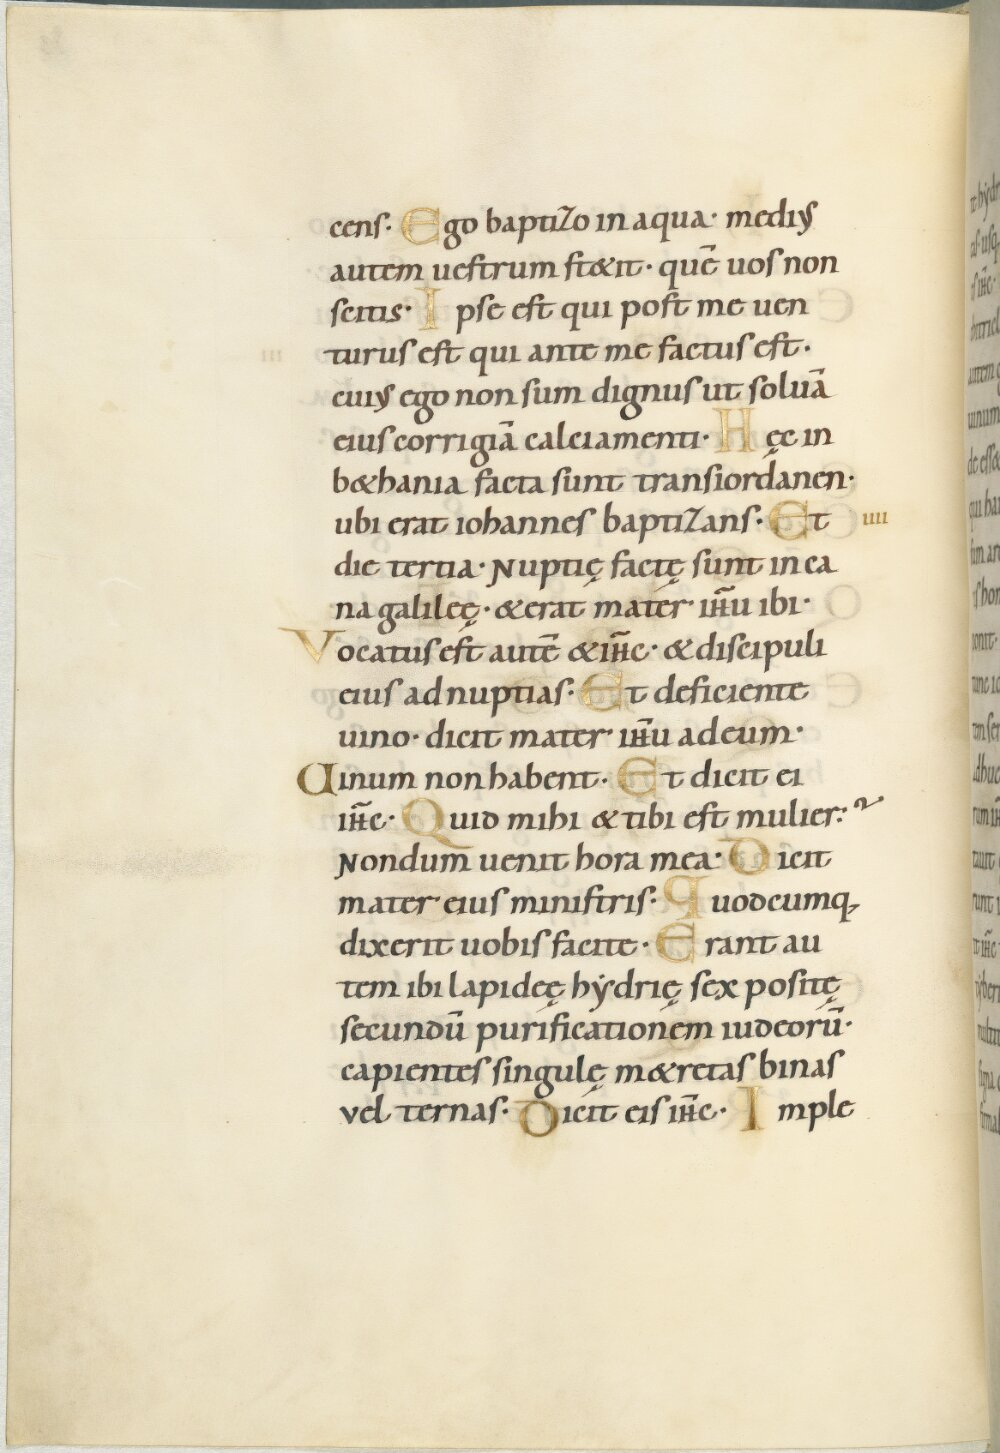 cens· Ego baptizo in aqua· mediꝰ
autem uestrum st&it· quē uos non
scitis· Ipse est qui post me uen
turus est qui ante me factus est·
cuiꝰ ego non sum dignus ut soluā
eius corrigiā calciamenti· Hęc in
b&hania facta sunt trans iordanen·
ubi erat iohannes baptizans· Et IIII
die tertia· Nuptię factę sunt in ca
na galileę· & erat mater ihū ibi·
Vocatus est autē & ihc̄· & discipuli
eius ad nuptias· Et deficiente
uino· dicit mater ihū ad eum·
Uinum non habent· Et dicit ei
ihc̄· Quid mihi & tibi est mulier:
Nondum uenit hora mea· Dicit
mater eius ministris· Quodcumq;
dixerit uobis facite· Erant au
tem ibi lapideę hẏdrię sex positę
secundū purificationem iudeorū·
capientes singulę m&retas binas
vel ternas· Dicit eis ihc̄· Imple